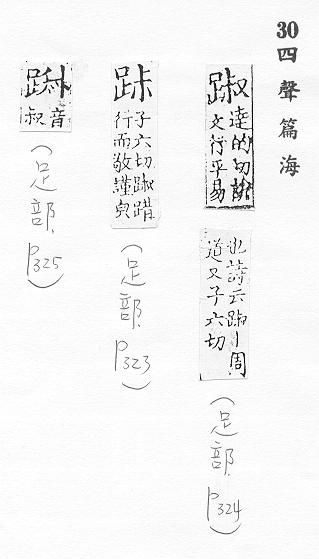 30四聲篇海
踧達的切說
文行平易
也詩云踧〻周
道又子六切
(足部 P324)
子六切踧踖
行而敬謹皃
(足部 P323)
音
叔
(足部 P325)